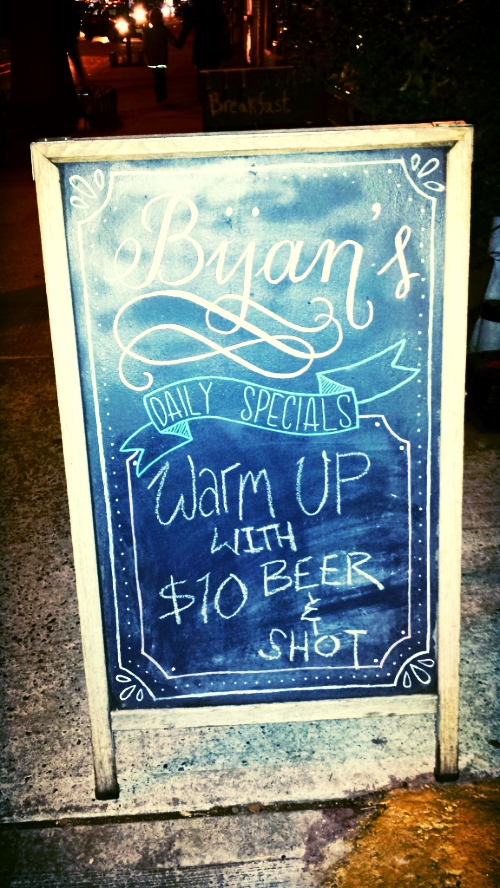 Breakfast
Bijan's
DAILY SPECIALS
Warm UP
WITH
$10 BEER
&
SHOT